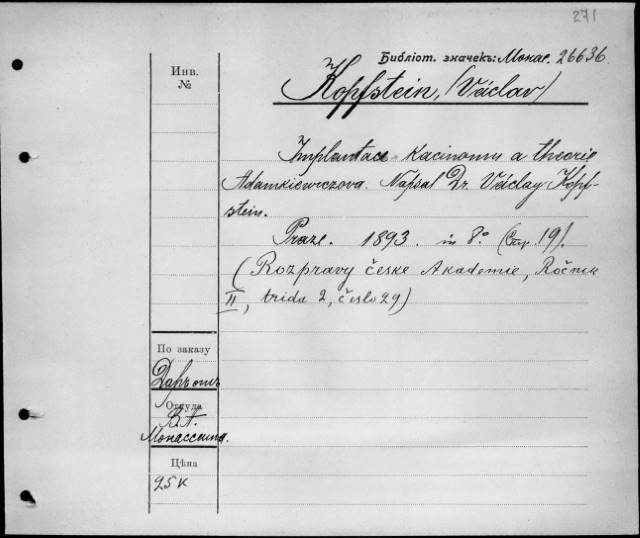 271
Библіот. значекъ: Монас. 26636.
Инв.
№
Kopfstein, (Václav)
Implantace kacinomu a theorie
Adamkiewiczova. Napsal Dr. Václav Kopf-
stein.
Praze. 1893. in 8.° (Стр. 19).
(Rozpravy česke Akademie, Ročnik
II, trida 2, čislo 29)
По заказу
Даръ отъ
Откуда
В. А.
Монассеина.
Цѣна
25 к